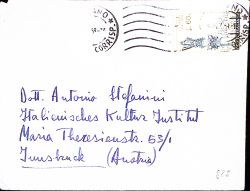 NO
CORRISP.
Dott. Antonio Stefanini
Italienisches Kultur Institut
Maria Theresienstr. 53/1
Innsbruck (Austria)